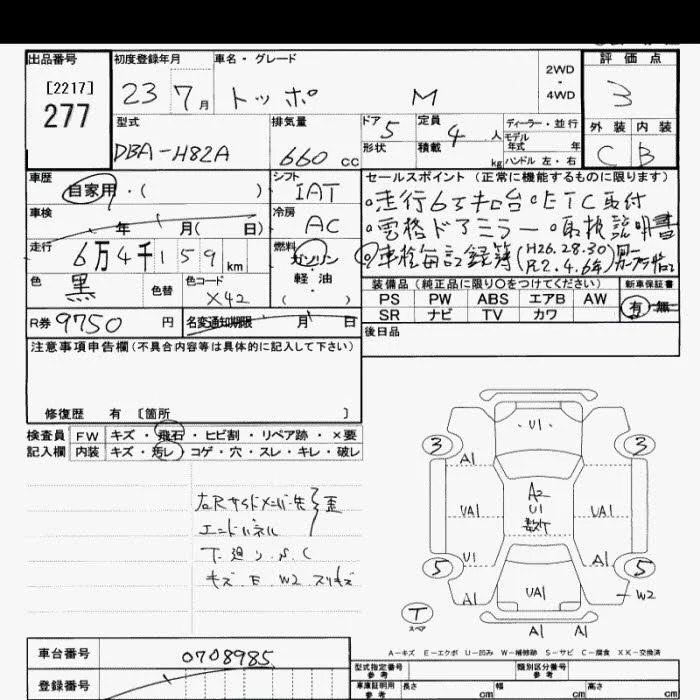 出品番号 初度登録年月 車名・グレード 評価点
[2217] 277 23 7月 トッポ M 2WD・4WD 3
型式 排気量 ドア 5 定員 4人 ディーラー・並行 外装 内装
DBA-H82A 660cc 形状 積載 kg モデル年式 年 ハンドル 左・右 C B
車歴 自家用・( ) シフト IAT セールスポイント(正常に機能するものに限ります)
・走行6万キロ台 ・ETC取付
車検 年 月(日) 冷房 AC ・電格ドアミラー ・取扱説明書
走行 6万4千159km 燃料 ガソリン・軽油 ・( ) ・車検毎記録簿(H26.28.30 R2.4.6年)
色 黒 色替 色コード X42 装備品(純正品に限り○をつけてください) 新車保証書
PS PW ABS エアB AW 有・無
R券 9750円 名変通知期限 月 日 SR ナビ TV カワ
注意事項申告欄(不具合内容等は具体的に記入して下さい) 後日品
修復歴 有 [箇所 ]
検査員 FW キズ・飛石・ヒビ割・リペア跡・×要
記入欄 内装 キズ・汚レ・コゲ・穴・スレ・キレ・破レ
U1
3 3
A1
右Rサイドメンバー先 歪
A2
エンドパネル
UA1 U1 UA1
下廻りS.C
U1 A1
キズ E W2 スリキズ
5 5
UA1
A1 W2
T スペア
A1 A1
A-キズ E-エクボ U-凹み W-補修跡 S-サビ C-腐食 XX-交換済
車台番号 0708985 型式指定番号 参考 類別区分番号 参考
登録番号 車庫証明用 参考 長さ cm 幅 cm 高さ cm